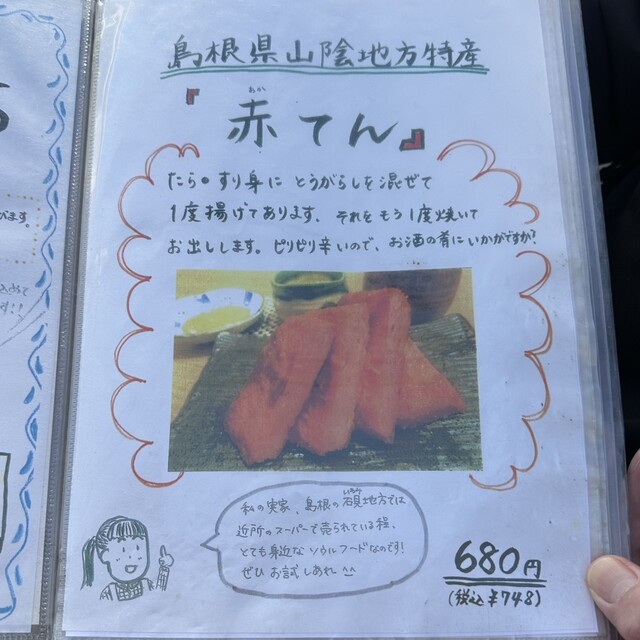 島根県山陰地方特産
『赤てん』
あか
たらのすり身にとうがらしを混ぜて
1度揚げてあります。それをもう1度焼いて
お出しします。ピリピリ辛いので、お酒の肴にいかがですか?
私の実家、島根の石見地方では
いわみ
近所のスーパーで売られている程、
とても身近なソウルフードなのです!
ぜひお試しあれ^^
680円
(税込¥748)